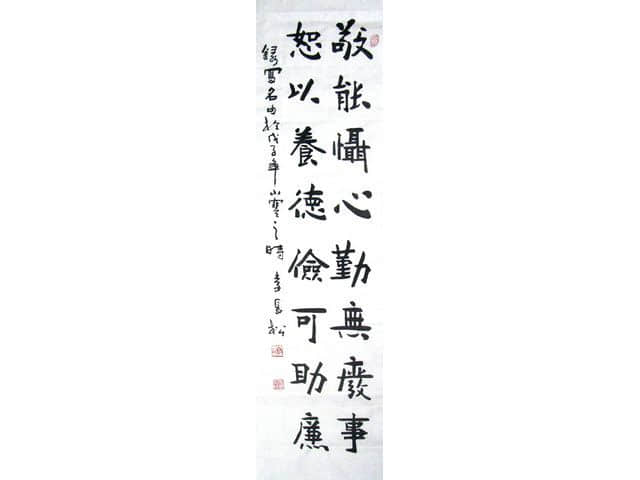 敬能懾心勤無廢事
恕以養德儉可助廉
錄寫名句於戊子年小寒之時